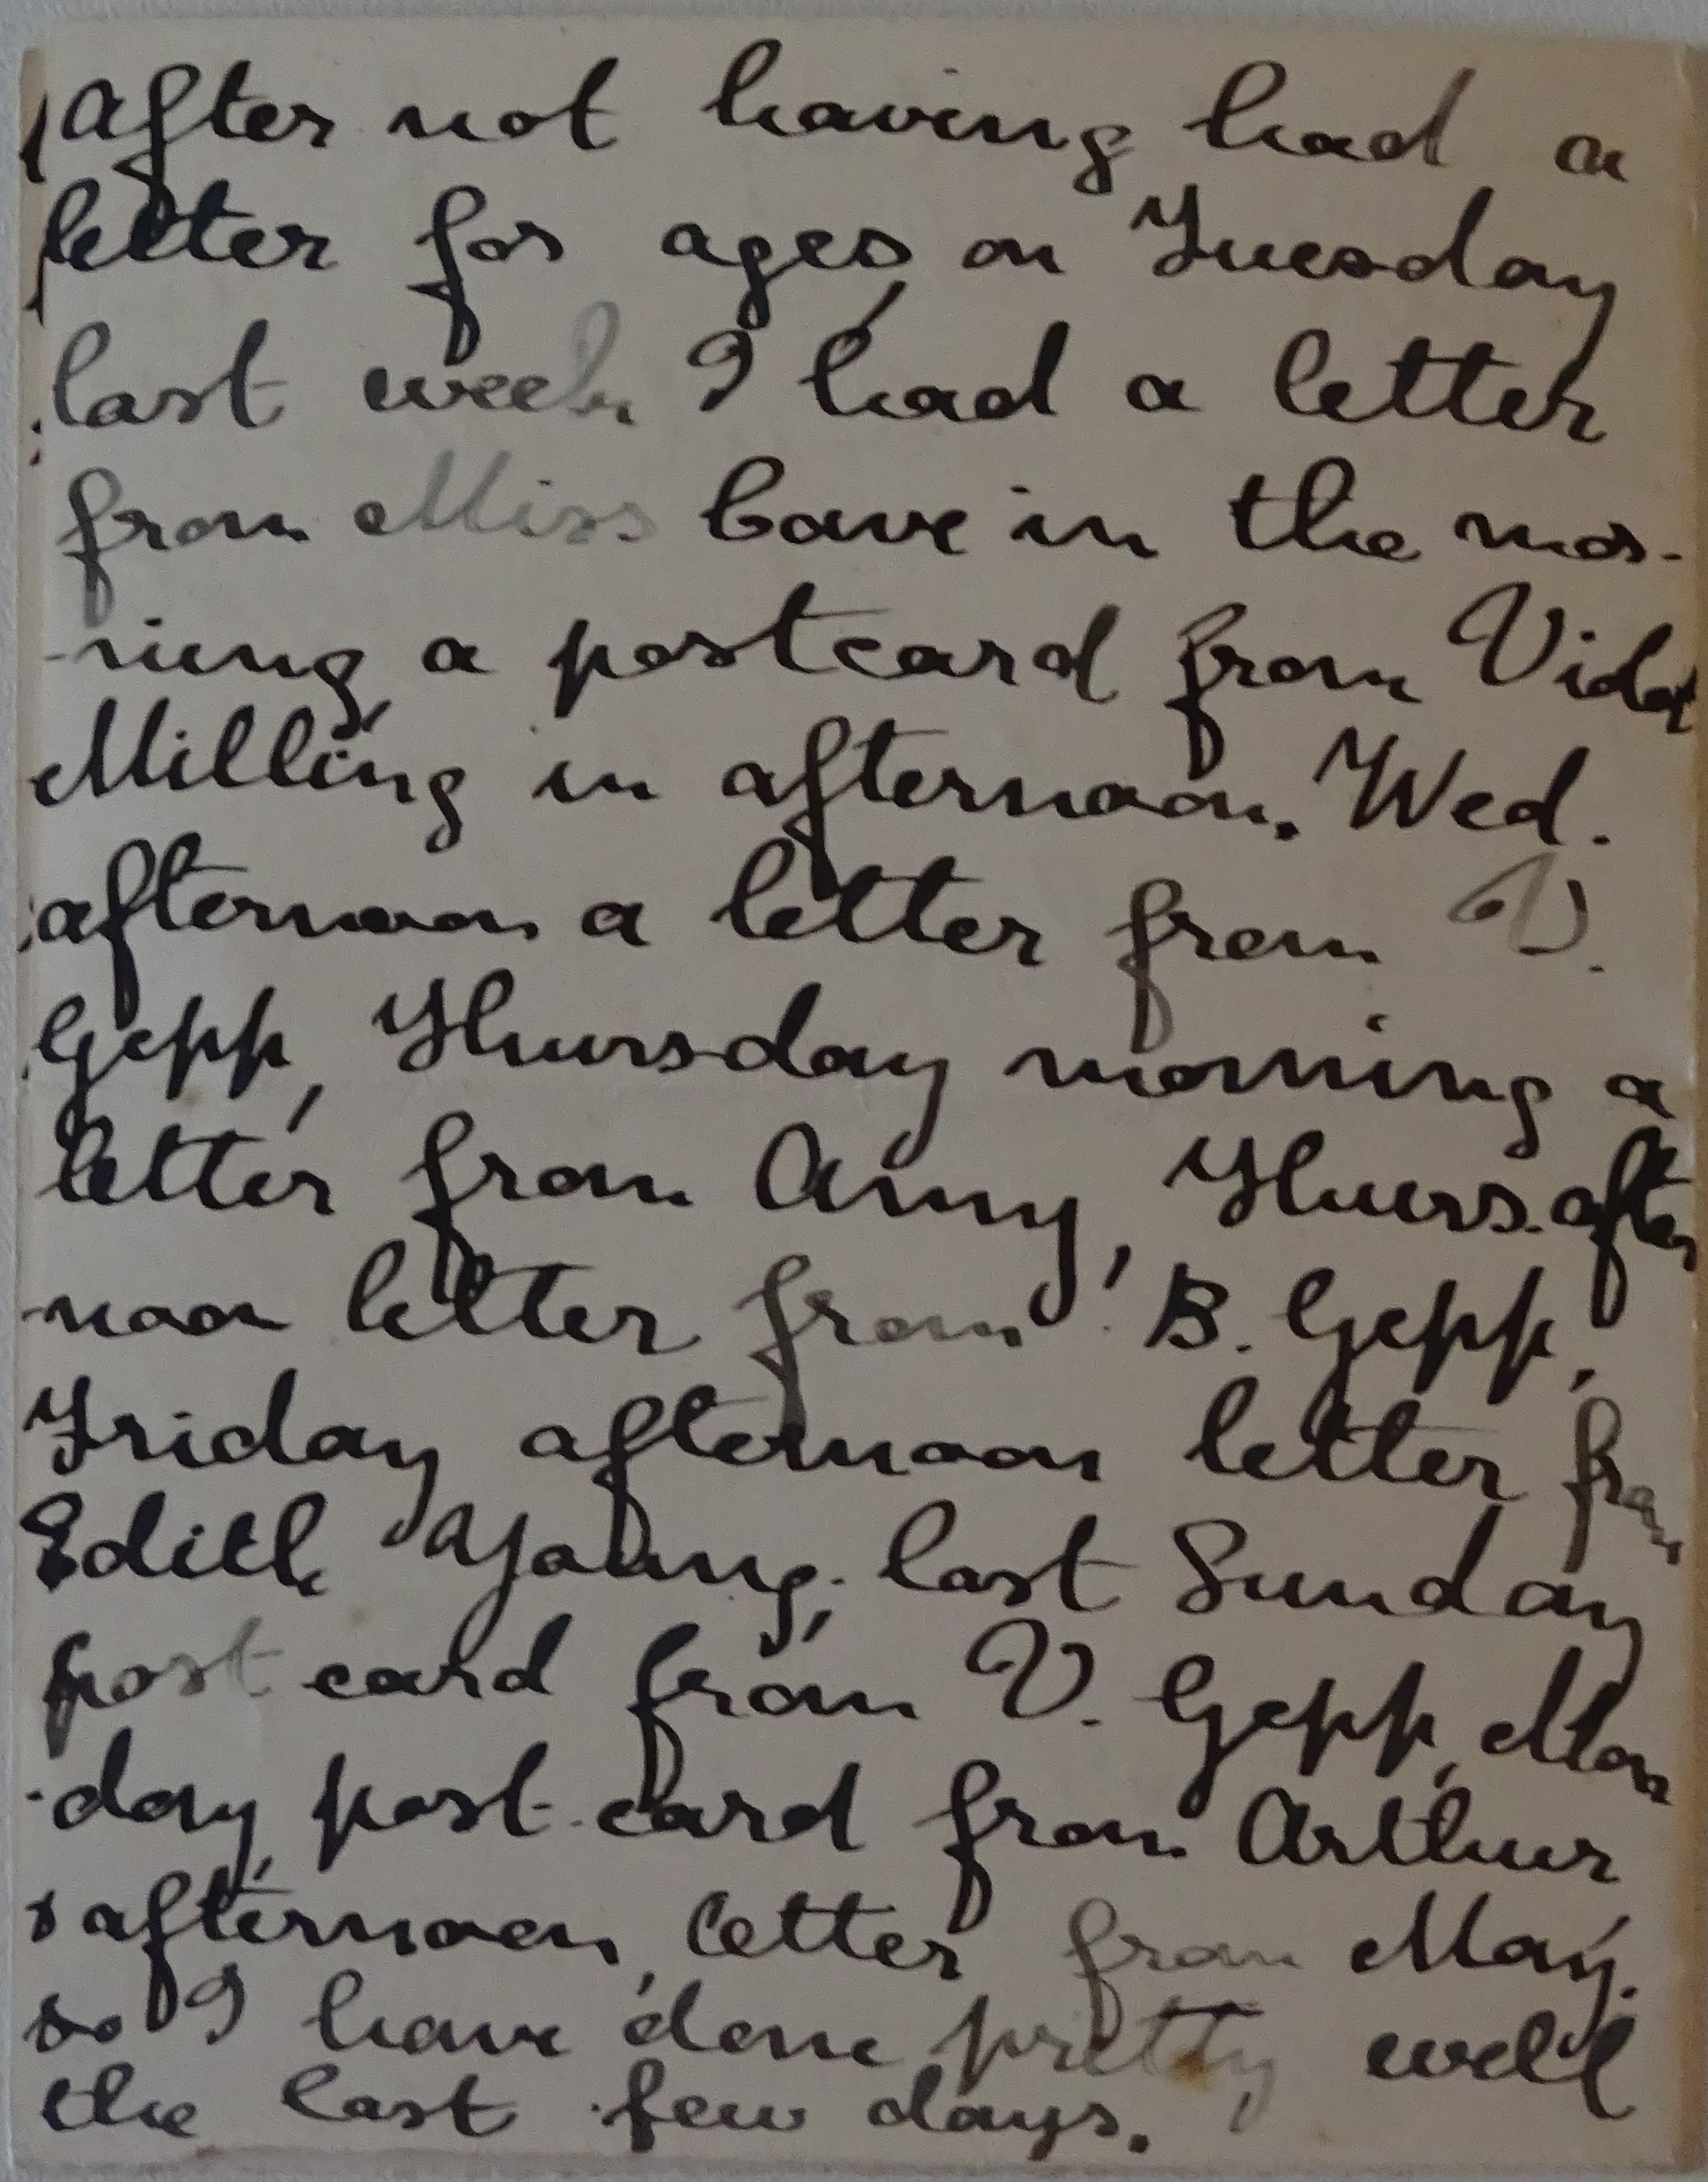 After not having had a
letter for ages, on Tuesday
last week I had a letter
from Miss Cave in the mor-
-ning, a postcard from Vida
Milling in afternoon. Wed.
afternoon a letter from V.
Gepp, Thursday morning a
letter from Amy, Thurs. after
-noon letter from B. Gepp,
Friday afternoon letter from
Edith Young, last Sunday
post card from V. Gepp, Mon
-day, post-card from Arthur
& afternoon, letter from May.
so I have done pretty well
the last few days.